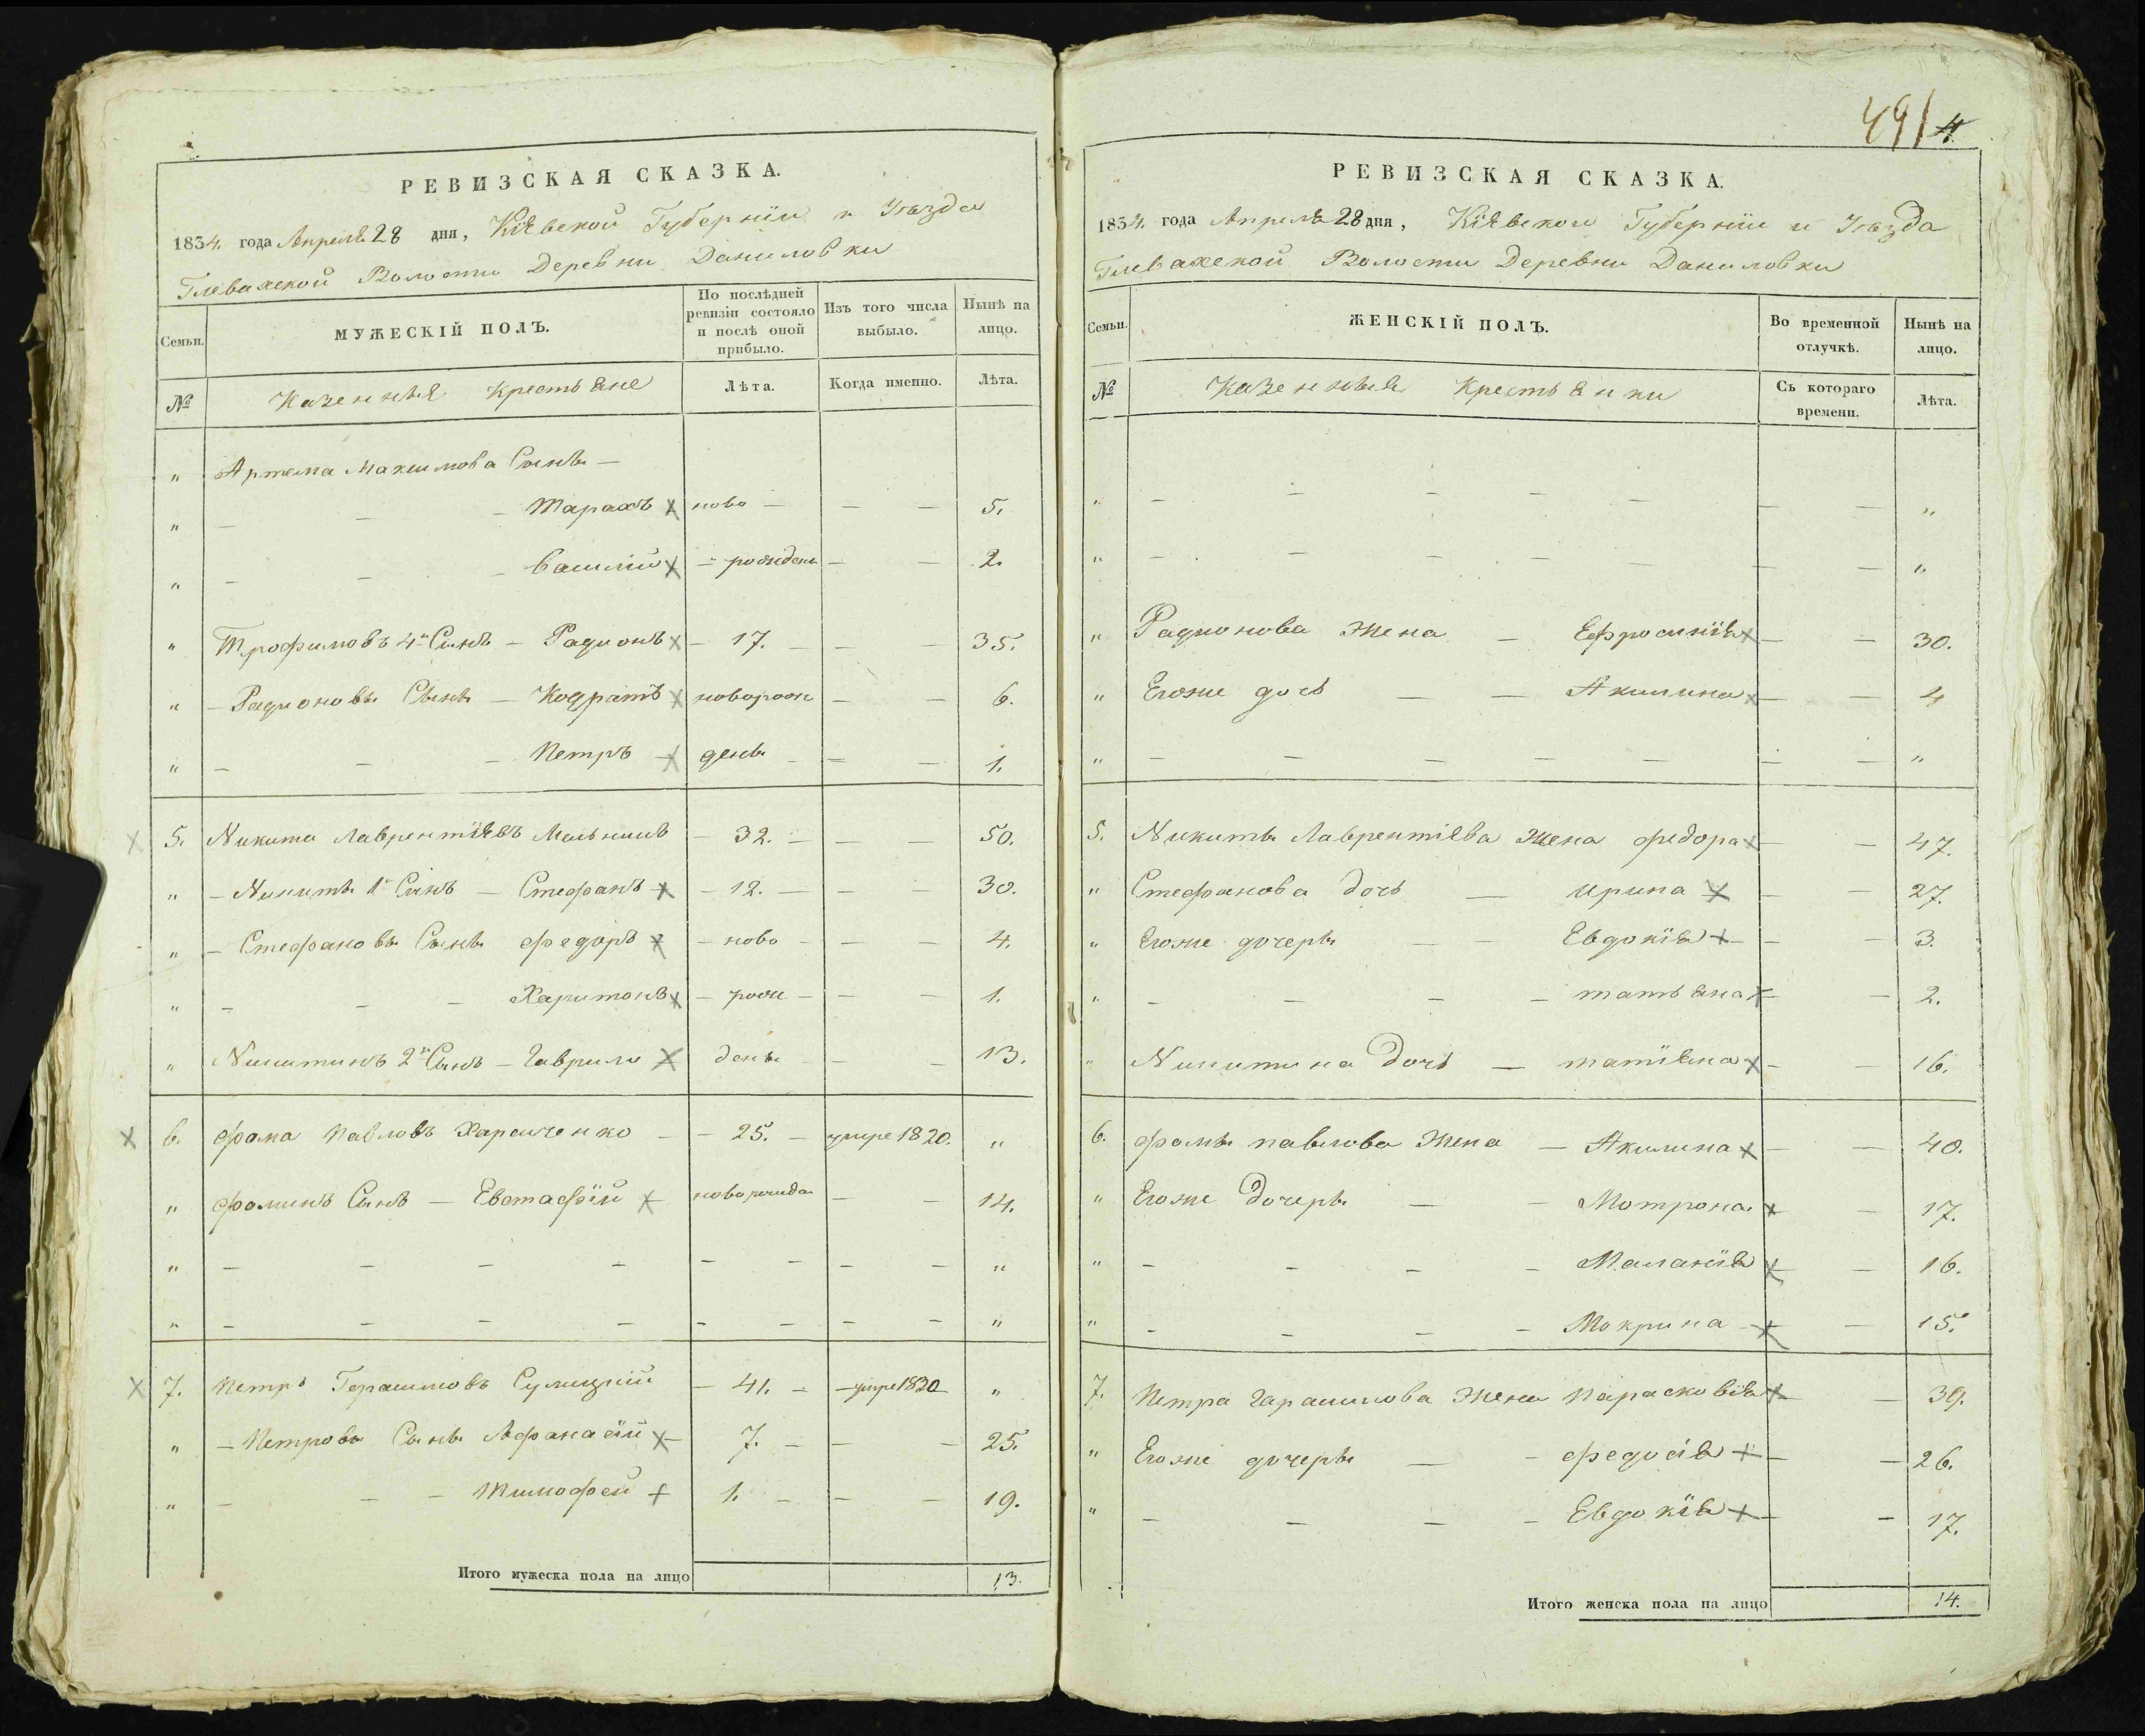 РЕВИЗСКАЯ СКАЗКА.
1834. года Апреля 28 дня, Кіевской Губерніи и Уѣзда
Глевахской Волости Деревни Даниловки
Семьи.
МУЖЕСКІЙ ПОЛЪ.
По послѣдней ревизіи состояло и послѣ оной прибыло.
Изъ того числа выбыло.
Нынѣ на лицо.
№ Казенныя Крестьяне
Лѣта. Когда именно. Лѣта.
„ Артема Максимова Сынъ —
„ — — — Тарахъ х ново — — — 5.
„ — — — Василій х — рожден — — 2.
„ Трофимовъ 4й Сынъ — Радионъ х — 17. — — — 35.
„ — Радионовы Сынъ — Кодратъ х новорож — — 6.
„ — — — Петръ х день — — — 1.
х 5. Никита Лаврентіевъ — 32. — — — 50.
„ — Никиты 1й Сынъ — Стефанъ х — 12. — — — 30.
„ — Стефановы Сынъ федоръ х — ново — — — 4.
„ — — — Харитонъ х — рож — — — 1.
„ Никитинъ 2й Сынъ — Гаврило х день — — — 13.
х 6. фома Павловъ Харченко — — 25. — умре 1820. „
„ фоминъ Сынъ — Евстафій х новорожде — — 14.
„ — — — — — — — — „
„ — — — — — — — — „
х 7. Петръ Герасимовъ Сулицкій — 41. — — умре 1830 — „
„ — Петровы Сынъ Афанасій х — 7. — — — 25.
„ — — — Тимофей х 1. — — — 19.
Итого мужеска пола на лицо 13.
491 4.
РЕВИЗСКАЯ СКАЗКА.
1834. года Апреля 28 дня, Кіевской Губерніи и Уѣзда
Глевахской Волости Деревни Даниловки
Семьи.
ЖЕНСКІЙ ПОЛЪ.
Во временной отлучкѣ.
Нынѣ на лицо.
№ Казенныя Крестьянки
Съ котораго времени.
Лѣта.
„ — — — — — — — „
„ — — — — — — — „
„ Радионова Жена — Ефросинія х — — 30.
„ Егоже дочь — — Акилина х — — 4
„ — — — — — — — „
5. Никиты Лаврентіева Жена федора х — — 47.
„ Стефанова дочь — Ирина х — — 27.
„ Егоже дочеры — — Евдокія х — — 3.
„ — — — — татьяна х — — 2.
„ Никитина Дочь — татіяна х — — 16.
6. фомы павлова Жена — Акилина х — — 40.
„ Егоже Дочеры — — Мотрона х — — 17.
„ — — — — Маланія х — — 16.
„ — — — — Мокрина х — — 15.
7. Петра Гарасимова Жена Парасковія х — 39.
„ Егоже дочеры — — федосія х — — 26.
„ — — — — Евдокія х — — 17.
Итого женска пола на лицо 14.